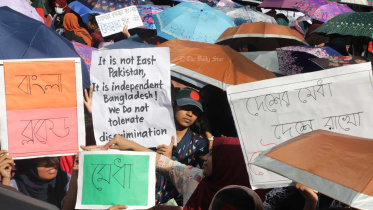 The Daily Star
It is not East
Pakistan,
It is independent
Bangladesh!
We Do not
tolerate
discrimination
বাংলা
ব্লকেড
মেধা
দেশের মেধা
দেশে রাখো